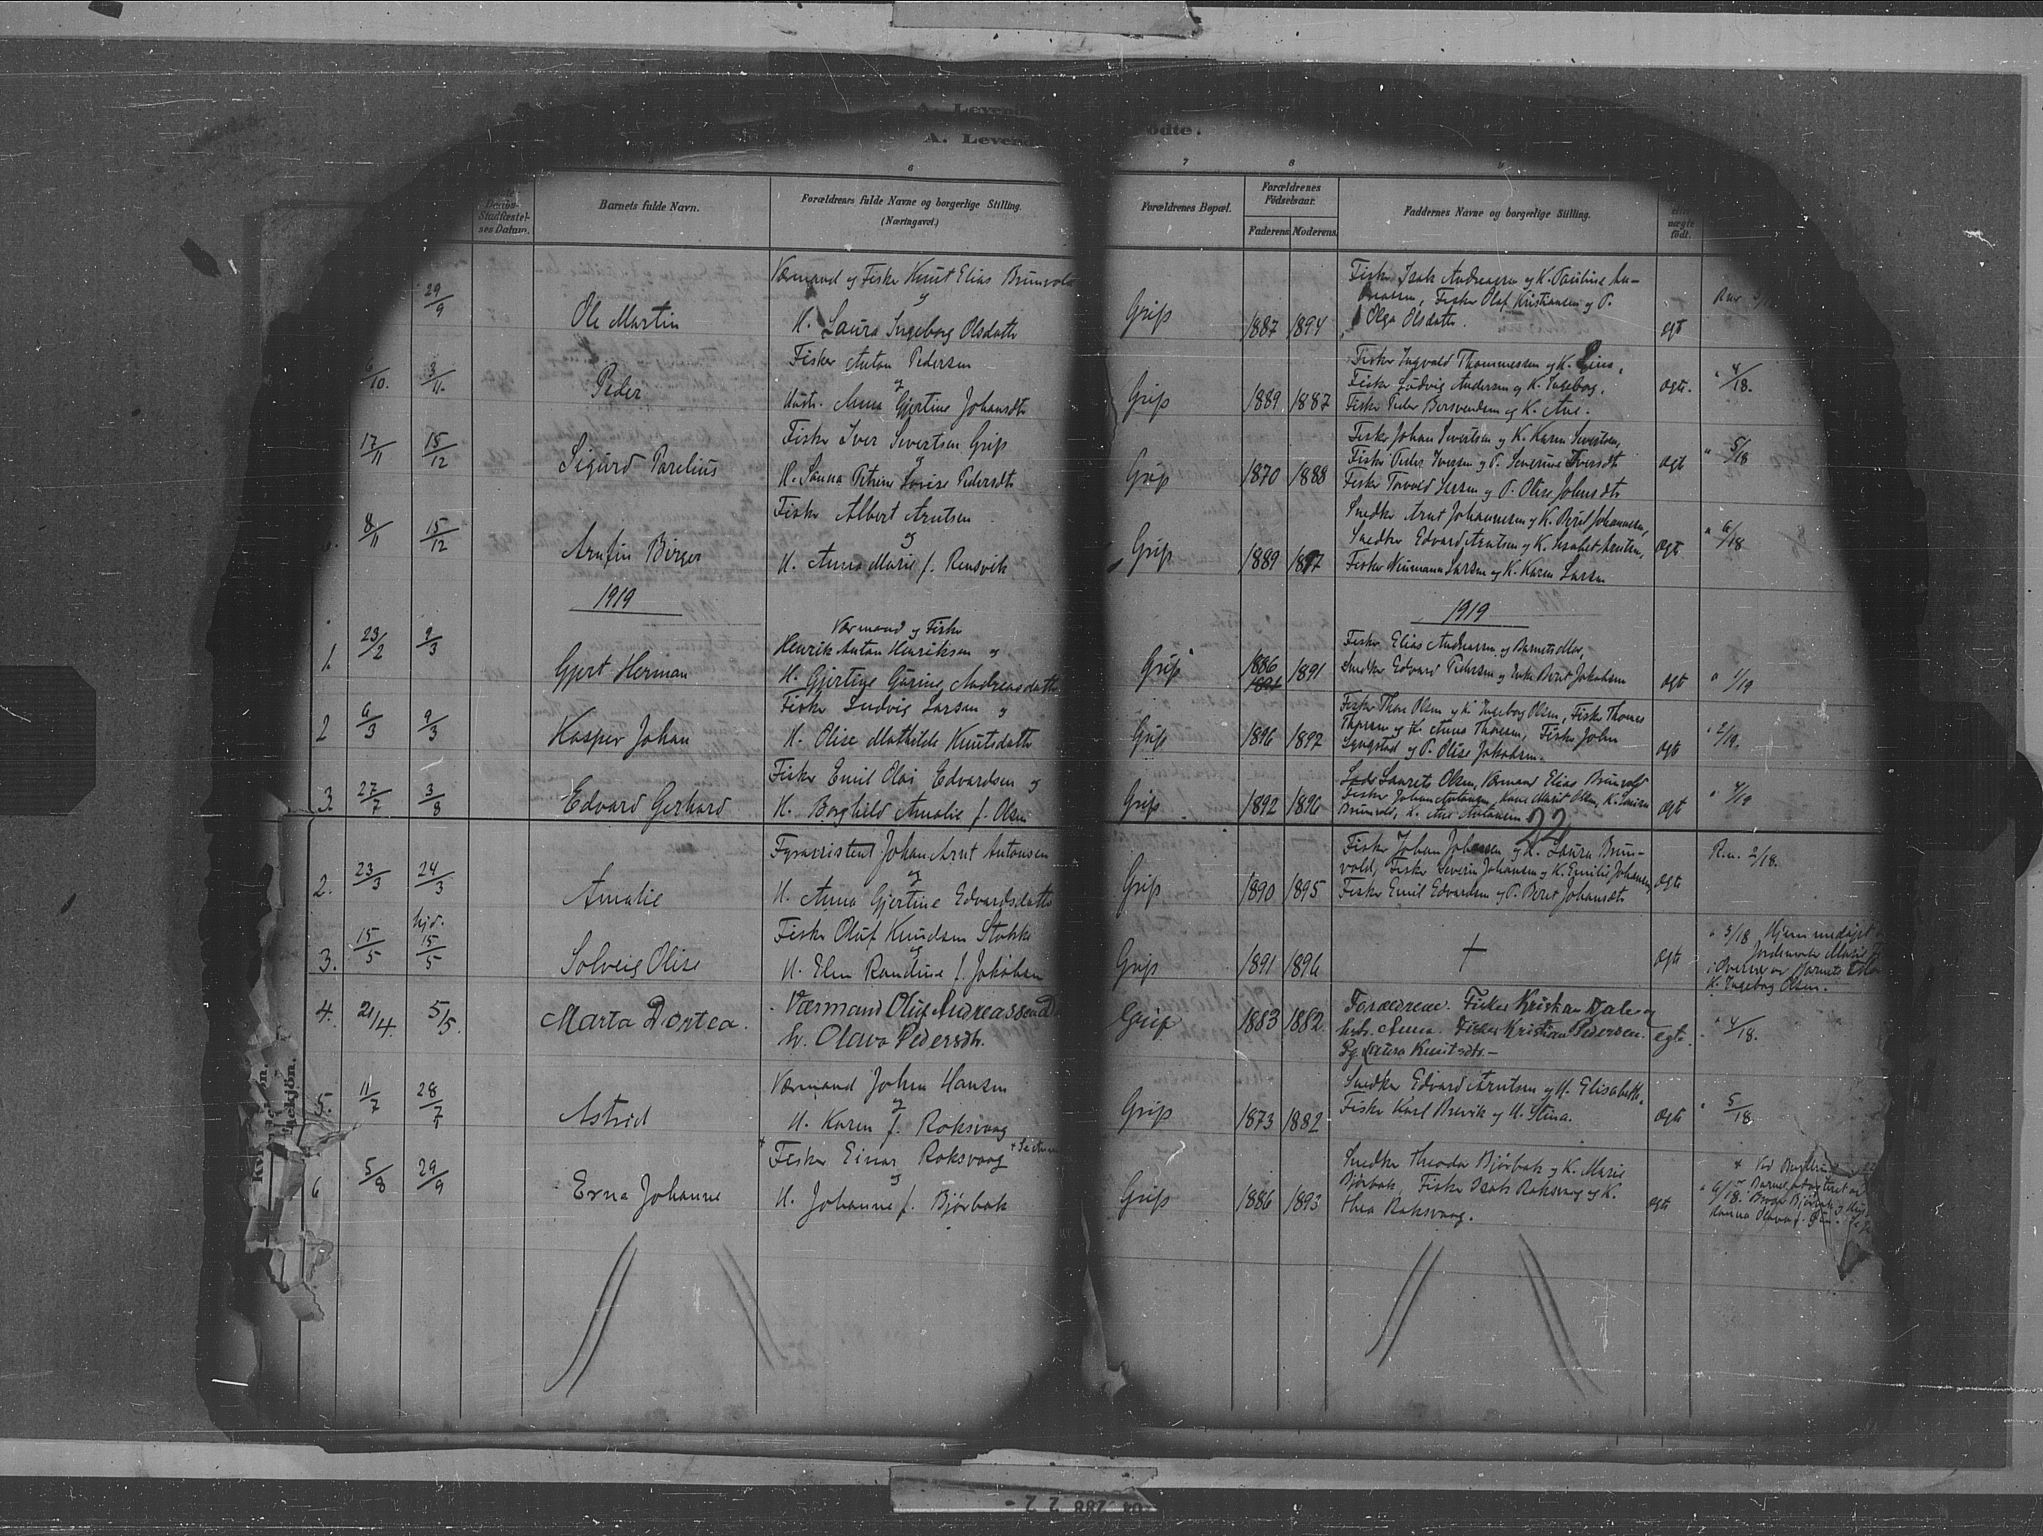 A. Levend
A. Levende
ødte.
6
7
8
Daabs-
Stadfæstel-
ses Datum.
Barnets fulde Navn.
Forældrenes fulde Navne og borgerlige Stilling.
(Næringsvei.)
Forældrenes Bopæl.
Forældrenes
Fødselsaar.
Faderens Moderens
Faddernes Navne og borgerlige Stilling.
uægte
født.
29/9
Ole Martin
Værmand og Fisker Knut Elias Brunvold
og
H. Laura Ingeborg Olsdatter
Grip
1887 1894
Fisker Isak Andreassen og K. Pauline An-
dreassen, Fisker Olaf Kristiansen og P.
Olga Olsdatter.
egt
6/10. 3/11
Peder
Fisker Anton Pedersen
og
Hustr. Anna Gjertine Johansdtr
Grip
1889 1887
Fisker Ingvald Thommessen og K.
Fisker Ludvig Andersen og K. Ingeborg.
Fisker Peder Bersvendsen og K. Ane.
egte.
" 4/18.
17/11 15/12
Sigurd Parelius
Fisker Iver Sivertsen Grip
og
H. Sanna Petrine Lovise Pedersdtr
Grip
1870 1888
Fisker Johan Sivertsen og K. Karen Sivertsen,
Fisker Peder Iversen og P. Severine Iversdtr
Fisker Torvald Larsen og P. Olise Johnsdtr
egt
" 5/18
8/11 15/12
Arnfin Birger
Fisker Albert Arntsen
og
H. Anna Marie f. Rensvik
Grip
1889 1897
Snedker Arnt Johannesen og K. Berit Johannesen,
Snedker Edvard Arntsen og K. Lisabet Arntsen,
Fisker Neumann Larsen og K. Karen Larsen
egt
" 6/18
1919
1919
1 23/2 9/3
Gjert Herman
Værmand og Fisker
Henrik Anton Henriksen og
H. Gjertine Gurine Andreasdatter
Grip
1886 1891
1891
Fisker Elias Andreassen og Barnets Mor,
Snedker Edvard Pedersen og Enke Berit Jakobsen
egt
" 1/19
2 6/3 9/3
Kasper Johan
Fisker Ludvig Larsen og
H. Olise Mathilde Knutsdatter
Grip
1896 1897
Fisker Thore Olsen og K. Ingeborg Olsen, Fisker Thomas
Thoresen og K. Anna Thoresen, Fisker John
Lyngstad og P. Olise Jakobsen.
egt
" 2/19.
3. 27/7 3/8
Edvard Gerhard
Fisker Emil Olai Edvardsen og
H. Borghild Amalie f. Olsen
Grip
1892 1896
Laurets Olsen, Værmand Elias Brunvold
Fisker Johan Antonsen, Kone Marit Olsen, K. Laura
Brunvold, K. Ane Antonsen
egt
" 4/19
22
2. 23/3 24/3
Amalie
Fyrassistent Johan Arnt Antonsen
og
H. Anna Gjertine Edvardsdatter
Grip
1890 1895
Fisker Johan Johansen og K. Laura Brun-
vold, Fisker Severin Johansen og K. Emilie Johansen,
Fisker Emil Edvardsen og P. Berit Johansdtr
egte
R.n. 2/18.
3. 15/5 hjd. 15/5
Solveig Olise
Fisker Oluf Knudsen Stokke
og
H. Elen Randine f. Jakobsen
Grip
1891 1896
+
egte
" 3/18 Hjemmedøpt
Jordemoder
i Overvær av Barnets
K. Ingeborg Olsen.
4. 21/4. 5/5.
Marta Dortea.
Værmand Oluf Andreassen
h. Olava Pedersdtr.
Grip
1883 1882
Forældrene. Fisker Kristian Dale og
hstr. Anna. Fisker Kristian Pedersen.
Pg. Laura Knutsdtr.-
egte.
" 4/18.
5. 11/7 28/7
Astrid
Værmand John Hansen
og
H. Karen f. Roksvaag
Grip
1873 1882
Snedker Edvard Arntsen og H. Elisabeth.
Fisker Karl Brevik og H. Stina.
egte
" 5/18.
6 5/8 29/9
Erna Johanne
+ Fisker Einar Roksvaag
og
H. Johanne f. Bjørbak
Grip
1886 1893
Snedker Theodor Bjørbak og K. Marie
Bjørbak, Fisker Isak Roksvaag og K.
Thea Roksvaag.
egte
" 6/18.